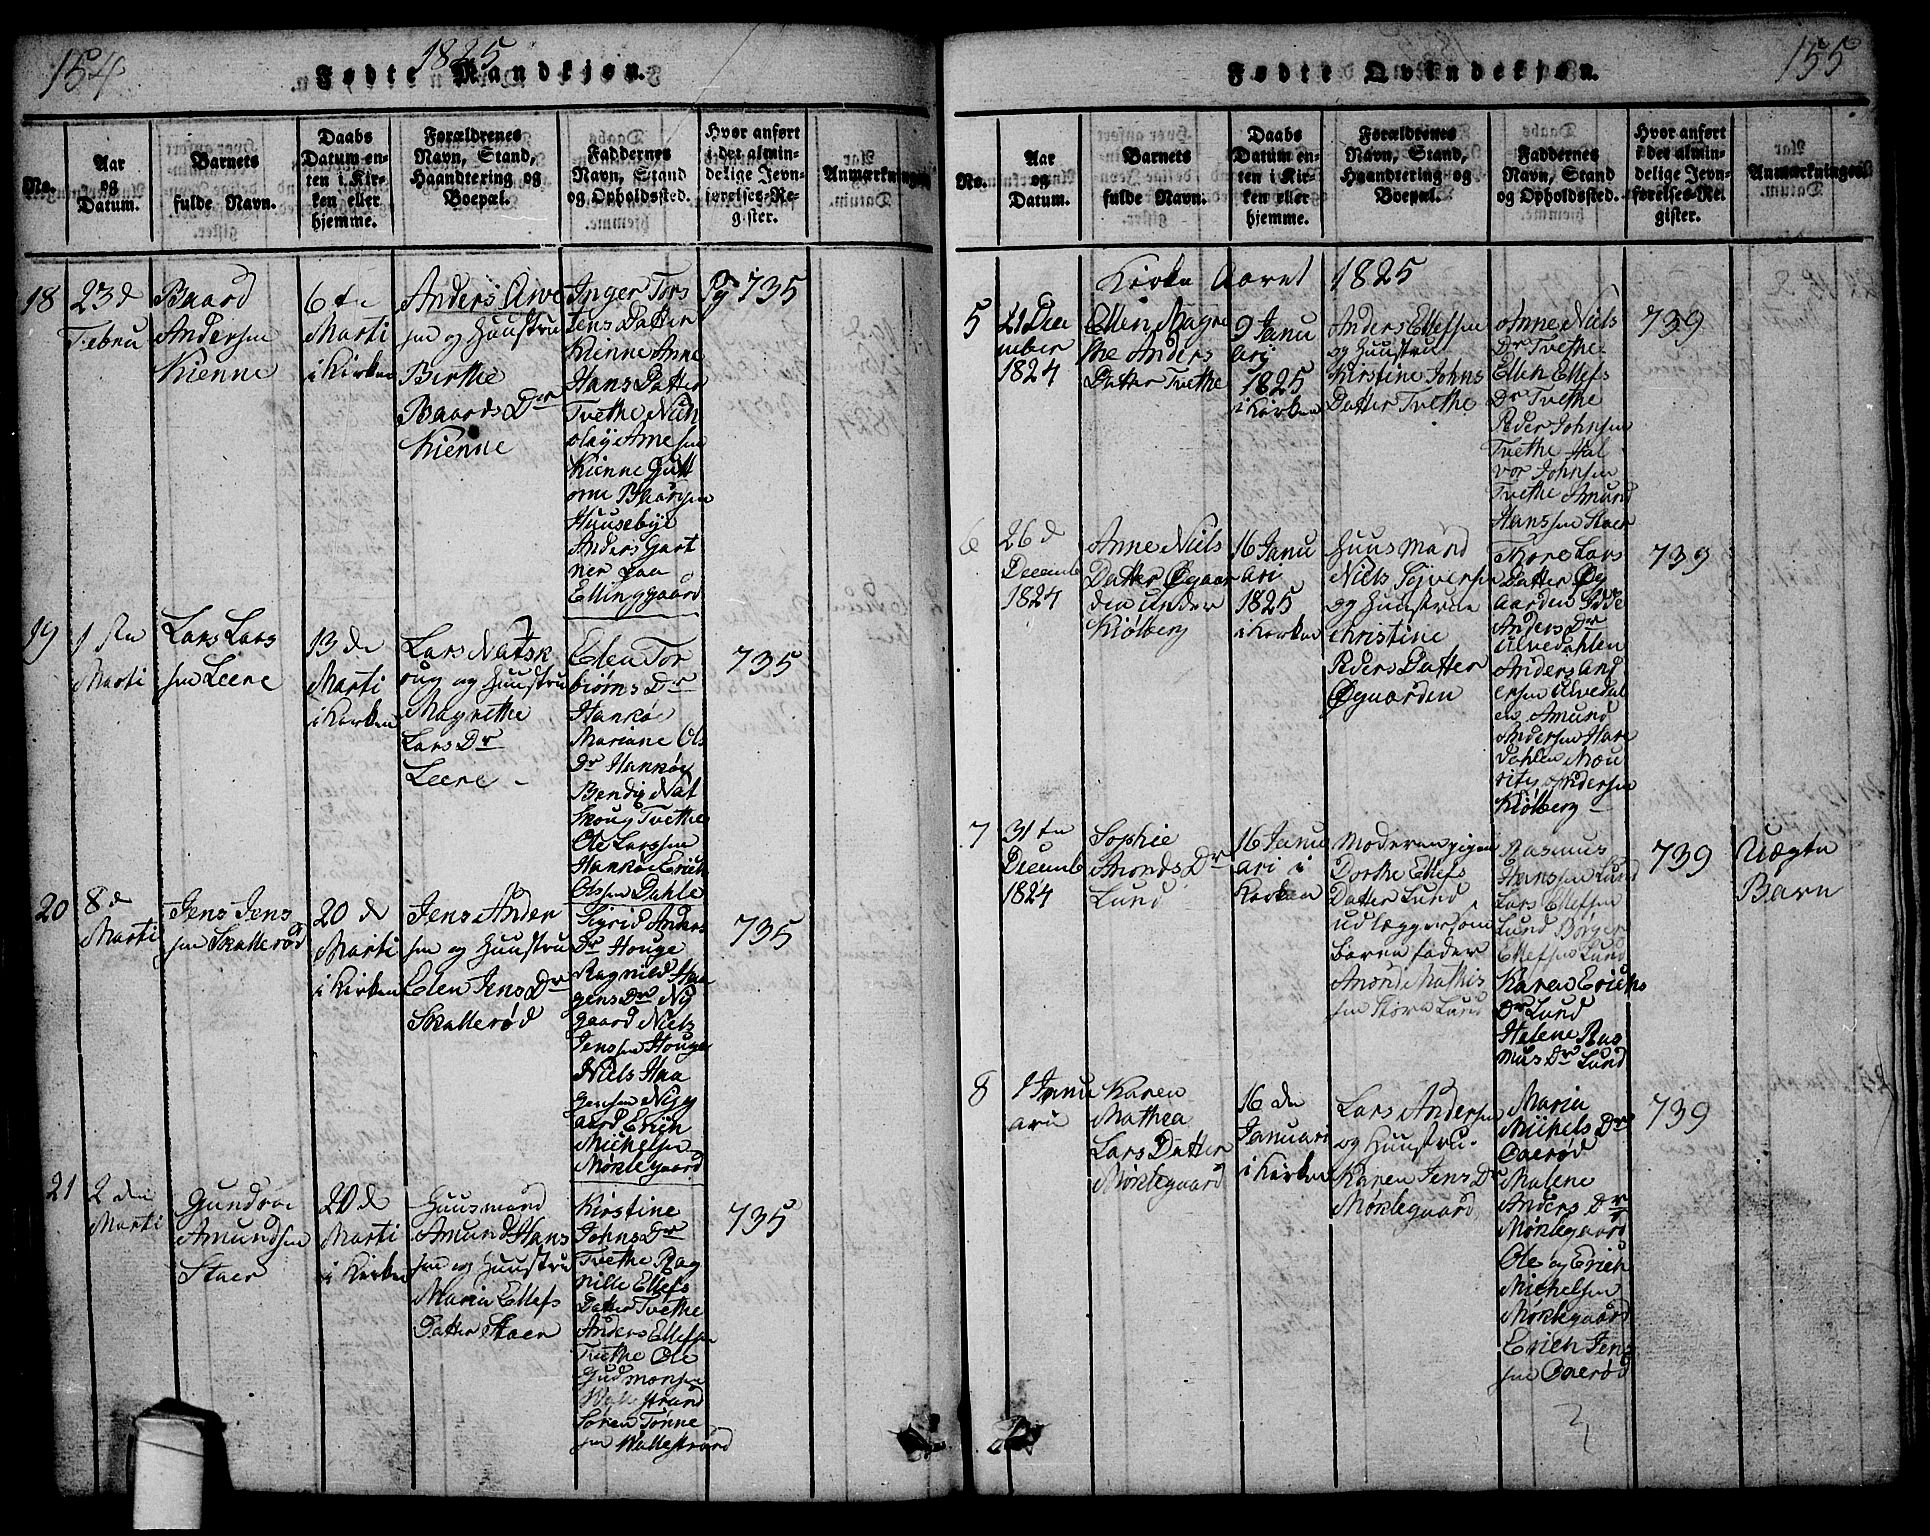 154
1825
Fødte Mandkjøn.
No.
Aar
og
Datum.
Barnets
fulde Navn.
Daabs
Datum en-
ten i Kir-
ken eller
hjemme.
Forældrenes
Navn, Stand,
Haandtering og
Boepæl.
Faddernes
Navn, Stand
og Opholdssted.
Hvor anført
i det almin-
delige Jevn-
førelses-Re-
gister.
Anmærkninger
18
23 d
Febru
Baard
Andersen
Kienne
6te
Marti
i Kirken
Anders Arve
sen og Huustru
Birthe
Baards Dr
Kienne
Inger Tors
tens Datter
Kienne Anne
Hans Datter
Tvethe Nich
olay Arnesen
Kienne Gutt
orm Baardsen
Huusebye
Anders Gart
ner paa
Ellinggaard
Pg 735
19
1 ten
Marti
Lars Lars
sen Leere
13 de
Marti
i Kirken
Lars Natsk
oug og Huustru
Magrethe
Lars Dr
Leere -
Elen Tor
biørns Dr
Hankøe
Mariane Ols
Dr Hankøe
Bendig Nat
skoug Tvethe
Ole Larssen
Hankøe Erich
Olssen Dahle
735
20
8 d
Marti
Jens Jens
sen Skallerød
20 d
Marti
i Kirken
Jens Ander
sen og Huustru
Elen Jens Dr
Skallerød
Sigrid Anders
Dr Houge
Ragnild Haa
gens Dr Ny
gaard Niels
Jenssen Houge
Niels Haa
gensen Nyg
aard Erich
Michelsen
Møklegaard
735
21
2 den
Marti
Gundroe
Amundsen
Staer
20 d
Marti
i Kirken
Huusmand
Amund Hans
sen og Huustru
Maria Ellefs
Datter Staer
Kirstine
Johns Dr
Tvethe Rag
nille Ellefs
Datter Tvethe
Anders Ellefsen
Tvethe Ole
Gudmonsen
Wallestrand
Søren Tønne
sen Wallestrand
735
155
Fødte Qvindekjøn.
No.
Aar
og
Datum.
Barnets
fulde Navn.
Daabs
Datum en-
ten i Kir-
ken eller
hjemme.
Forældrenes
Navn, Stand,
Haandtering og
Boepæl.
Faddernes
Navn, Stand
og Opholdssted.
Hvor anført
i det almin-
delige Jevn-
førelses-Re-
gister.
Anmærkninger
Kirke Aaret 1825
5
21 Dec
ember
1824
Ellen Magre
the Anders
Datter Tvethe
9 Janu
ari
1825
i Kirken
Anders Ellefsen
og Huustru
Kirstine Johns
Datter Tvethe
Anne Niels
Dr Tvethe
Ellen Ellefs
Dr Tvethe
Peder Johnsen
Tvethe Hal
vor Johnsen
Tvethe Amund
Hanssen Staer
739
6
26 d
Decemb
1824
Anne Niels
Datter Øgaar
den under
Kiølberg
16 Janu
ari
1825
i Kirken
Huusmand
Niels Syversen
og Huustrue
Christine
Peders Datter
Øgaarden
Thore Lars
Datter Øg
aarden Sidse
Anders Dr
Alvedahlen
Anders And
ersen Alvedal
en Amund
Andersen Hare
dahlen Mou
ritz Andersen
Kiølberg -
739
7
31 ten
Decemb
1824
Sophie
Amonds Dr
Lund
16 Janu
ari i
Kirken
Moderen pigen
Dorthe Ellefs
Datter Lund
udlegger som
barnefader
Amond Mathis
sen Store Lund
Rasmus
Hanssen Lund
Lars Ellefsen
Lund Børger
Ellefsen Lund
Karen Erichs
Dr Lund
Helene Ras
mus Dr Lund
739
Uægte
Barn
8
1 Janu
ari
Karen
Mathea
Lars Datter
Møklegaard
16 den
Januari
i Kirken
Lars Andersen
og Huustru
Karen Jens Dr
Møklegaard
Maria
Michels Dr
Oaerød
Malene
Anders Dr
Møklegaard
Ole og Erich
Michelsen
Møklegaard
Erich Jens
sen Oaerød